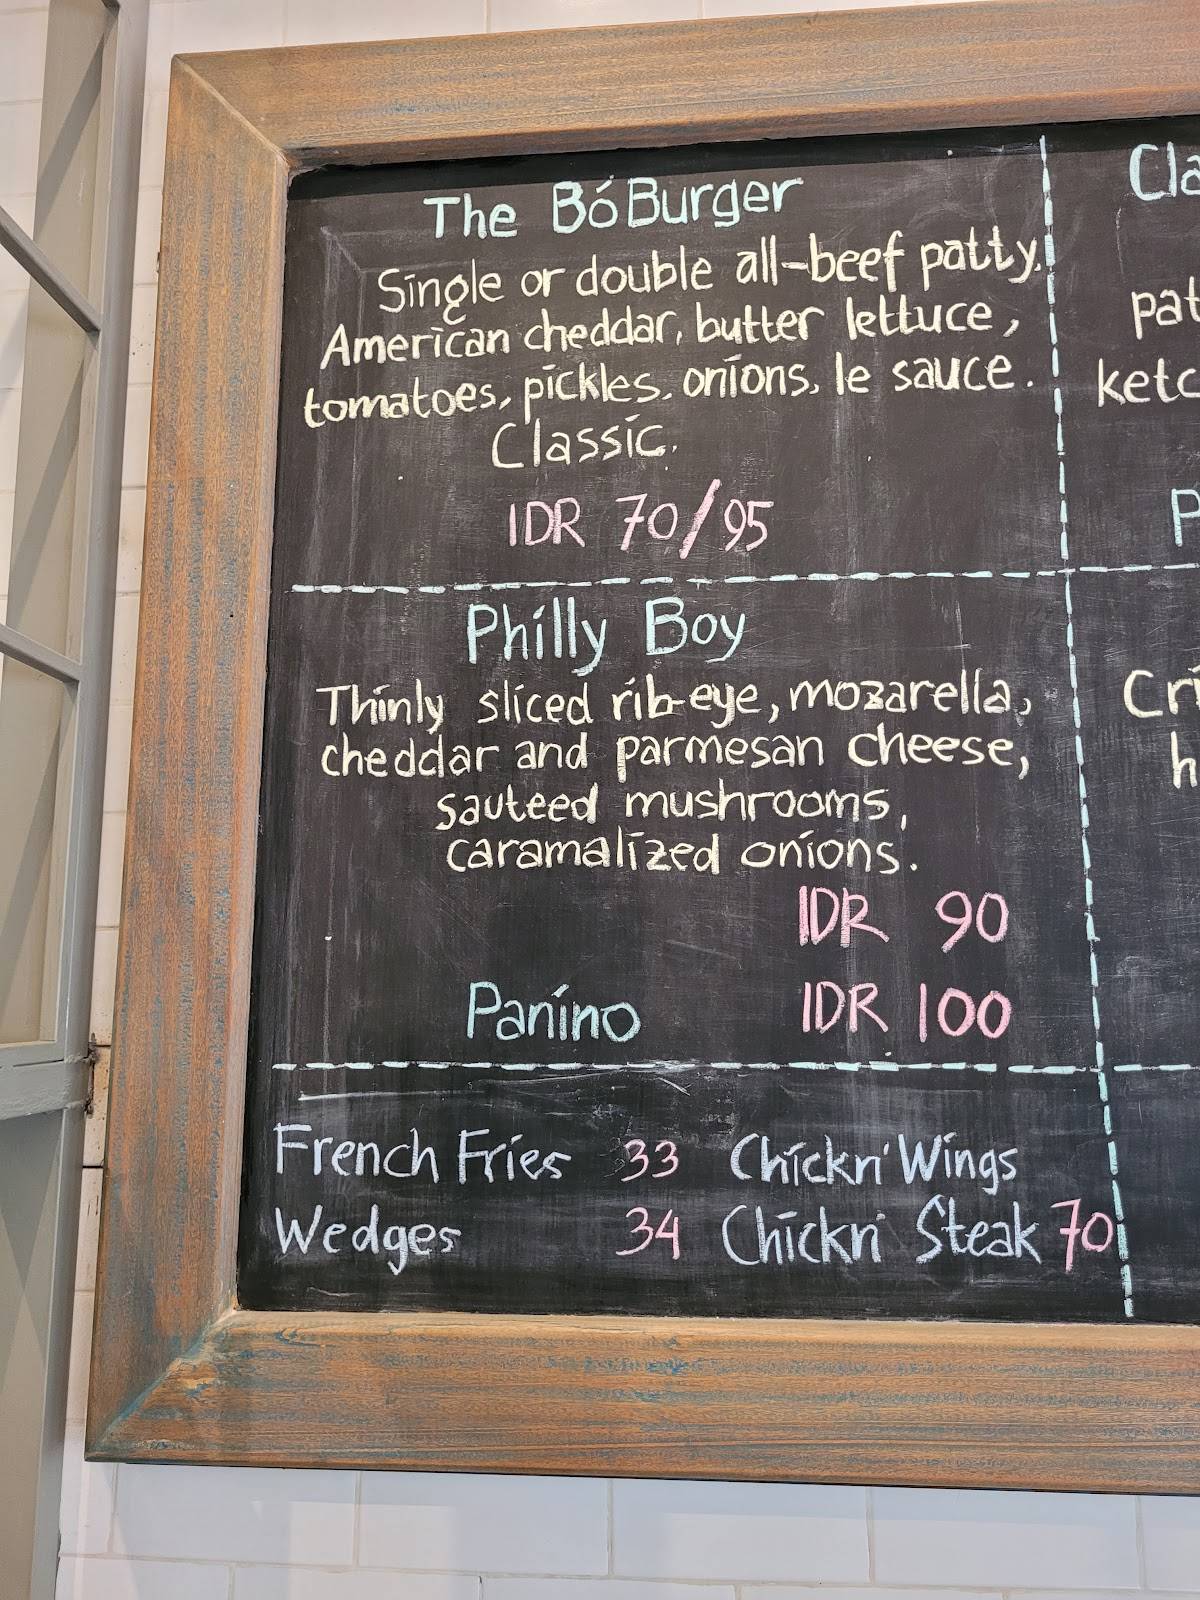 The BóBurger
Single or double all-beef patty.
American cheddar, butter lettuce,
tomatoes, pickles. onions, le sauce.
Classic.
IDR 70/95
Philly Boy
Thinly sliced rib-eye, mozarella,
cheddar and parmesan cheese,
sauteed mushrooms,
caramalized onions.
IDR 90
Panino IDR 100
French Fries 33 Chickn' Wings
Wedges 34 Chickn' Steak 70
Cla
pat
ketc
P
Cri
h